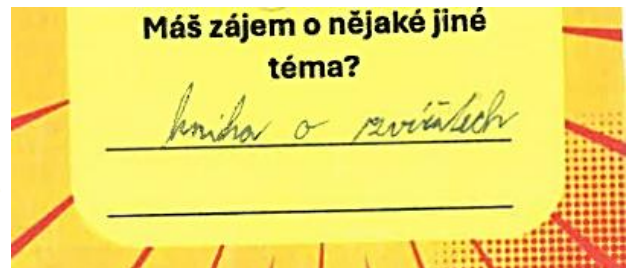 Máš zájem o nějaké jiné
téma?
kniha o zvířátech